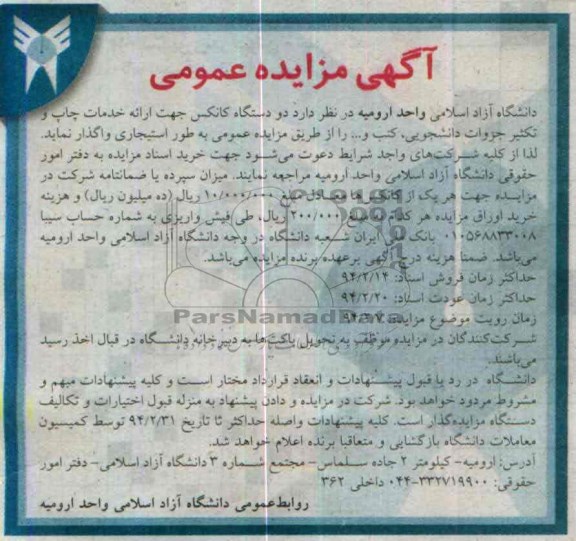 آگهی مزایده عمومی
دانشگاه آزاد اسلامی واحد ارومیه در نظر دارد دو دستگاه کانکس جهت ارائه خدمات چاپ و
تکثیر جزوات دانشجویی، کتب و... را از طریق مزایده عمومی به طور استیجاری واگذار نماید.
لذا از کلیه شرکت‌های واجد شرایط دعوت می‌شود جهت خرید اسناد مزایده به دفتر امور
حقوقی دانشگاه آزاد اسلامی واحد ارومیه مراجعه نمایند. میزان سپرده یا ضمانتنامه شرکت در
مزایده جهت هر یک از کانکس‌ها معادل مبلغ ۱۰/۰۰۰/۰۰۰ ریال (ده میلیون ریال) و هزینه
خرید اوراق مزایده هر کدام مبلغ ۲۰۰/۰۰۰ ریال، طی فیش واریزی به شماره حساب سیبا
۰۱۰۵۶۸۸۳۳۰۰۸ بانک ملی ایران شعبه دانشگاه در وجه دانشگاه آزاد اسلامی واحد ارومیه
می‌باشد. ضمنا هزینه درج آگهی برعهده برنده مزایده می‌باشد.
حداکثر زمان فروش اسناد: ۹۴/۲/۱۴
حداکثر زمان عودت اسناد: ۹۴/۲/۲۰
زمان رویت موضوع مزایده:
ParsNamadData
شرکت‌کنندگان در مزایده موظف به تحویل پاکت‌ها به دبیرخانه دانشگاه در قبال اخذ رسید
می‌باشند.
دانشگاه در رد یا قبول پیشنهادات و انعقاد قرارداد مختار است و کلیه پیشنهادات مبهم و
مشروط مردود خواهد بود. شرکت در مزایده و دادن پیشنهاد به منزله قبول اختیارات و تکالیف
دستگاه مزایده‌گذار است. کلیه پیشنهادات واصله حداکثر تا تاریخ ۹۴/۲/۳۱ توسط کمیسیون
معاملات دانشگاه بازگشایی و متعاقبا برنده اعلام خواهد شد.
آدرس: ارومیه- کیلومتر ۲ جاده سلماس- مجتمع شماره ۳ دانشگاه آزاد اسلامی- دفتر امور
حقوقی: ۳۳۲۷۱۹۹۰۰-۰۴۴ داخلی ۳۶۲
روابط عمومی دانشگاه آزاد اسلامی واحد ارومیه